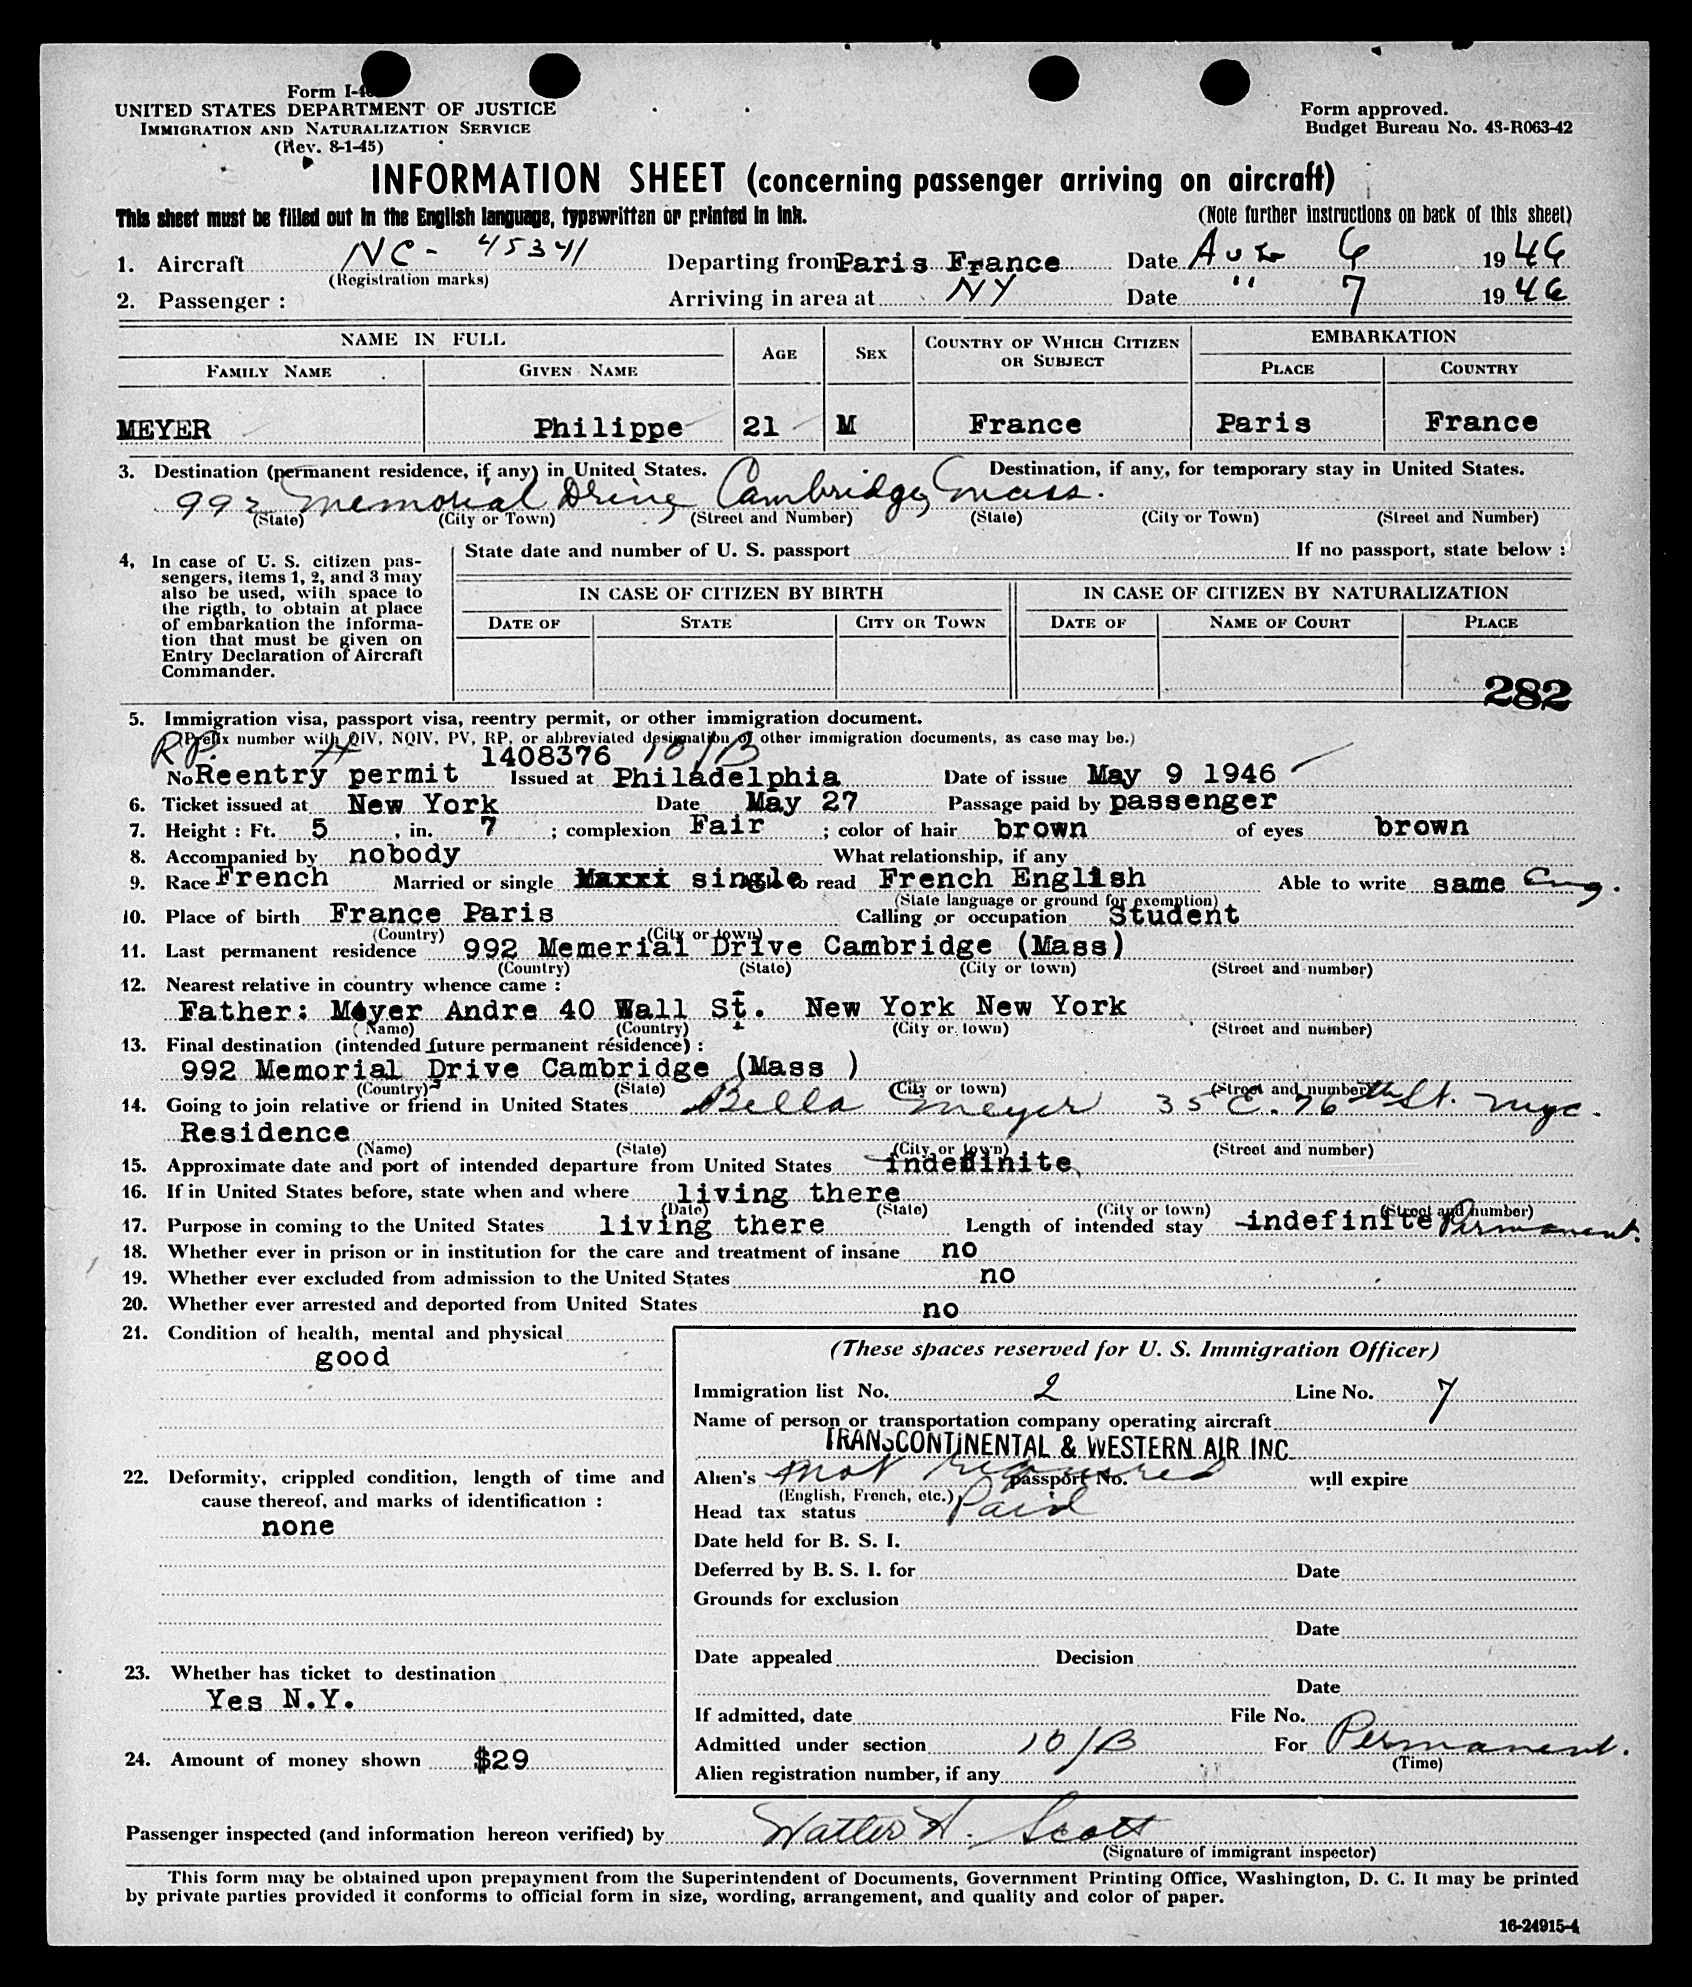 Form I-
UNITED STATES DEPARTMENT OF JUSTICE
IMMIGRATION AND NATURALIZATION SERVICE
(Rev. 8-1-45)
Form approved.
Budget Bureau No. 43-R063-42
INFORMATION SHEET (concerning passenger arriving on aircraft)
This sheet must be filled out in the English language, typewritten or printed in ink. (Note further instructions on back of this sheet)
1. Aircraft NC- 45341 Departing from Paris France Date Aug 6 1946
(Registration marks)
2. Passenger : Arriving in area at NY Date " 7 1946
NAME IN FULL AGE SEX COUNTRY OF WHICH CITIZEN OR SUBJECT EMBARKATION
FAMILY NAME GIVEN NAME PLACE COUNTRY
MEYER Philippe 21 M France Paris France
3. Destination (permanent residence, if any) in United States. Destination, if any, for temporary stay in United States.
992 Memorial Drive Cambridge, Mass.
(State) (City or Town) (Street and Number) (State) (City or Town) (Street and Number)
4, In case of U. S. citizen pas-
sengers, items 1, 2, and 3 may
also be used, with space to
the rigth, to obtain at place
of embarkation the informa-
tion that must be given on
Entry Declaration of Aircraft
Commander.
State date and number of U. S. passport If no passport, state below :
IN CASE OF CITIZEN BY BIRTH IN CASE OF CITIZEN BY NATURALIZATION
DATE OF STATE CITY OR TOWN DATE OF NAME OF COURT PLACE
282
5. Immigration visa, passport visa, reentry permit, or other immigration document.
(Prefix number with QIV, NQIV, PV, RP, or abbreviated designation of other immigration documents, as case may be.)
RP. # 1408376 10/B
No Reentry permit Issued at Philadelphia Date of issue May 9 1946
6. Ticket issued at New York Date May 27 Passage paid by passenger
7. Height : Ft. 5, in. 7 ; complexion Fair ; color of hair brown of eyes brown
8. Accompanied by nobody What relationship, if any
9. Race French Married or single Maxxi single to read French English Able to write same Eng.
(State language or ground for exemption)
10. Place of birth France Paris Calling or occupation Student
(Country) (City or town)
11. Last permanent residence 992 Memerial Drive Cambridge (Mass)
(Country) (State) (City or town) (Street and number)
12. Nearest relative in country whence came :
Father: Meyer Andre 40 Wall St. New York New York
(Name) (Country) (City or town) (Street and number)
13. Final destination (intended future permanent résidence) :
992 Memorial Drive Cambridge (Mass )
(Country) (State) (City or town) (Street and number)
14. Going to join relative or friend in United States Bella Meyer 35 E. 76th St. NYC.
Residence
(Name) (State) (City or town) (Street and number)
15. Approximate date and port of intended departure from United States indefinite
16. If in United States before, state when and where living there
(Date) (State) (City or town) (Street and number)
17. Purpose in coming to the United States living there Length of intended stay indefinite Permanent.
18. Whether ever in prison or in institution for the care and treatment of insane no
19. Whether ever excluded from admission to the United States no
20. Whether ever arrested and deported from United States no
21. Condition of health, mental and physical
good
22. Deformity, crippled condition, length of time and
cause thereof, and marks of identification :
none
23. Whether has ticket to destination
Yes N.Y.
24. Amount of money shown $29
(These spaces reserved for U. S. Immigration Officer)
Immigration list No. 2 Line No. 7
Name of person or transportation company operating aircraft
TRANSCONTINENTAL & WESTERN AIR INC.
Alien's not required passport No. will expire
(English, French, etc.)
Head tax status Paid
Date held for B. S. I.
Deferred by B. S. I. for Date
Grounds for exclusion
Date
Date appealed Decision
Date
If admitted, date File No.
Admitted under section 10/B For Permanent.
(Time)
Alien registration number, if any
Passenger inspected (and information hereon verified) by Walter H. Scott
(Signature of immigrant inspector)
This form may be obtained upon prepayment from the Superintendent of Documents, Government Printing Office, Washington, D. C. It may be printed
by private parties provided it conforms to official form in size, wording, arrangement, and quality and color of paper.
16-24915-4